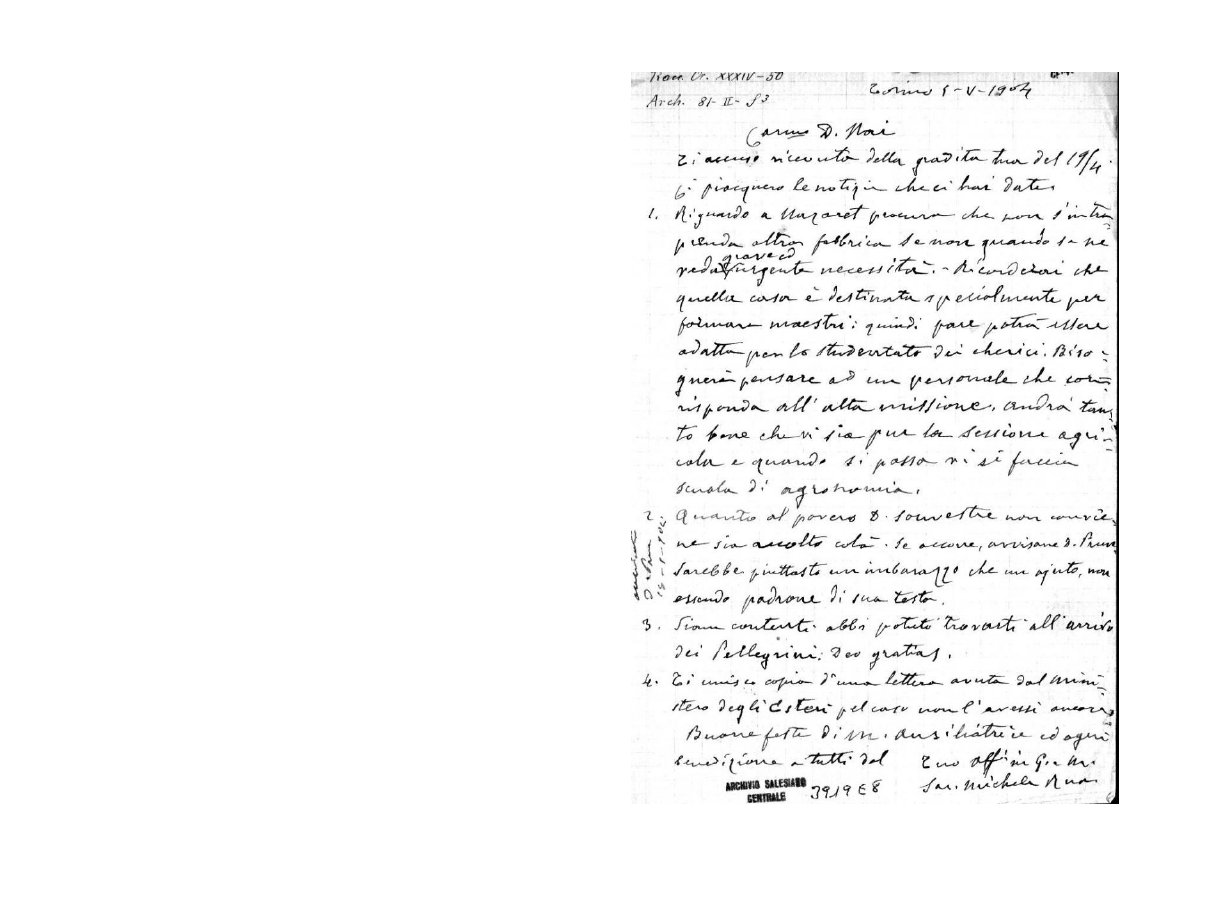 Arch. 81-II-
Torino 5-V-1904
Carmo D. Nai
Ti accuso ricevuta della gradita tua del 19/4.
Ci piacquero le notizie che ci hai date.
1. Riguardo a Nazaret procura che non s'intra
prenda altra fabbrica se non quando se ne
veda grave ed urgente necessità. - Ricordisi che
quella casa è destinata specialmente per
formare maestri; quindi pare potrà essere
adatta per lo studentato dei cherici. Biso-
gnerà pensare ad un personale che cor-
risponda all'alta missione. Andrà tan-
to bene che vi sia pur la sessione agri-
cola e quando si possa vi si faccia
scuola di agronomia.
2. Quanto al povero D. Souvestre non convie-
ne sia accolto colà. Se occorre, avvisane D. Prun
Sarebbe piuttosto un imbarazzo che un ajuto, non
essendo padrone di sua testa.
3. Siam contenti abbi potuto trovarti all'arrivo
dei Pellegrini: Deo gratias.
4. Ti unisco copia d'una lettera avuta dal mini-
stero degli Esteri pel caso non l'avessi ancora
Buone feste di M. Ausiliatrice ed ogni
benedizione a tutti dal Tuo aff in G. e M.
Sac. Michele Rua
ARCHIVIO SALESIANO
CENTRALE
3919 E8